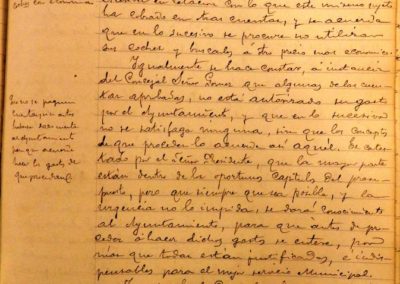 ha cobrado en otras cuentas, y se acuerda
que en lo sucesivo se procure no utilizar
sus coches y buscarlos, á otro precio mas económico.
Igualmente se hace constar, á instancia
del Concejal Señor Gomez que algunas de las cuen-
tas aprobadas, no está autorizado su gasto
por el Ayuntamiento, y que en lo sucesivo
no se satisfaga ninguna, sin que los conceptos
de que proceden lo acuerde así aquel. Se contes-
tado por el Señor Presidente, que la mayor parte
están dentro de los oportunos Capitulos del presu-
puesto, pero que siempre que sea posible, y la
urgencia no lo impida, se dará conocimiento
al Ayuntamiento, para que antes de pro-
ceder á hacer dichos gastos se entere, por
mas que todas están justificadas, é indis-
pensables para el mejor servicio Municipal.
Que no se paguen
cuentas sin antes
haber
el Ayuntamiento
hacer los gastos de
que procedan